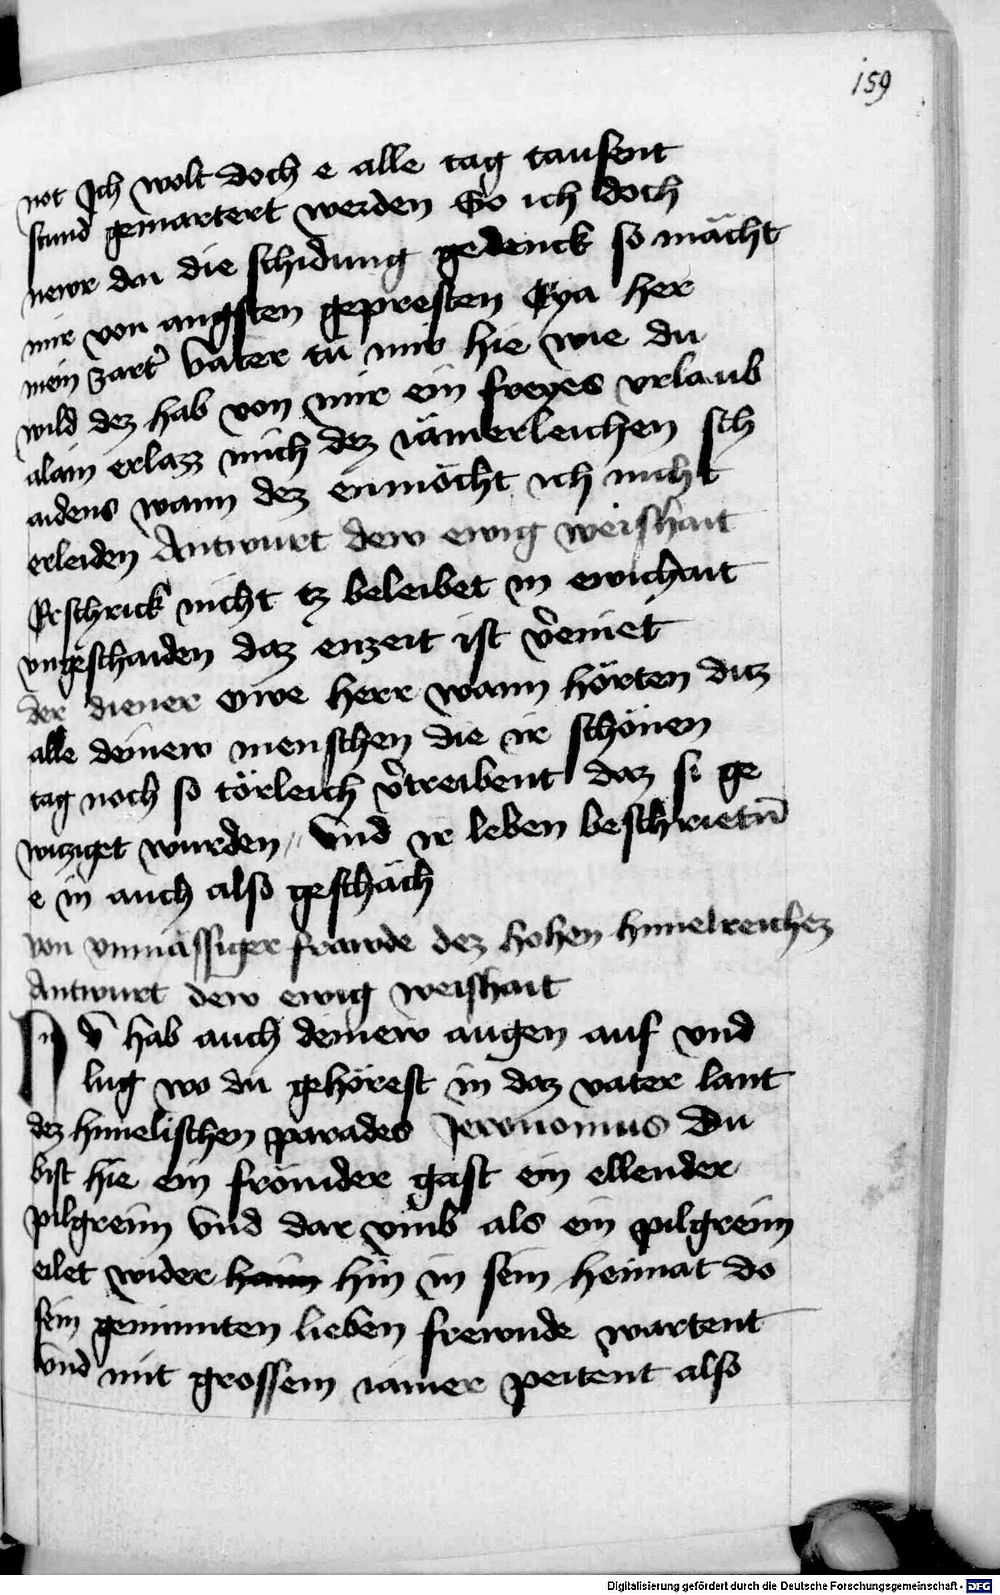 159
not Ich wolt doch e alle tag tausent
stund gemartert werden So ich doch
newr an die schidung gedenck so mächt
mir von angsten gepresten Eya her
mein zart vater tu mir hie wie du
wild dez hab von mir ein freyes vrlaub
alain erlazz mich dez iämerleichen sch
aidens wann dez enmöcht ich nicht
erleiden Antwurt dew ewig weishait
Erschrick nicht tz beleibet in ewichait
vngeschaiden daz enzeit ist v̉einet
der diener Owe herr wann hörten diz
alle deinew menschen die ir schönen
tag noch so törleich v̉treibent daz si ge
witziget wurden Vnd ir leben beschrietn̄
e in auch also geschäch
von vnmässiger frawde dez hohen himelreichez
Antwurt dew ewig weishait
Nu hab auch deinew augen auf vnd
lug wo du gehörest in daz vater lant
dez himelischen parades Jeronomus Du
bist hie ein frömder gast ein ellender
pilgreim Vnd dar vmb als ein pilgreim
eilet wider haim hin in sein heimat do
sein geminnten lieben frewnde wartent
Vnd mit grossem iamer peitent also
Digitalisierung gefördert durch die Deutsche Forschungsgemeinschaft - DFG